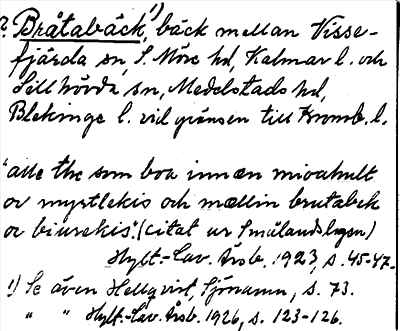 ? Bråtabäck,¹⁾ bäck mellan Visse-
fjärda sn, S. Möre hd, Kalmar l. och
Sillhövda sn, Medelstads hd,
Blekinge l. vid gränsen till Kronob. l.
"alle the som boa innæn mioahult
oc myrtlekis och mællin brutabek
oc biurekis". (citat ur Smålandslagen)
Hylt.-Cav. Årsb. 1923, s. 45-47.
1) Se även Hellqvist, Sjönamn, s. 73.
" " Hylt.-Cav. Årsb. 1926, s. 123-126.